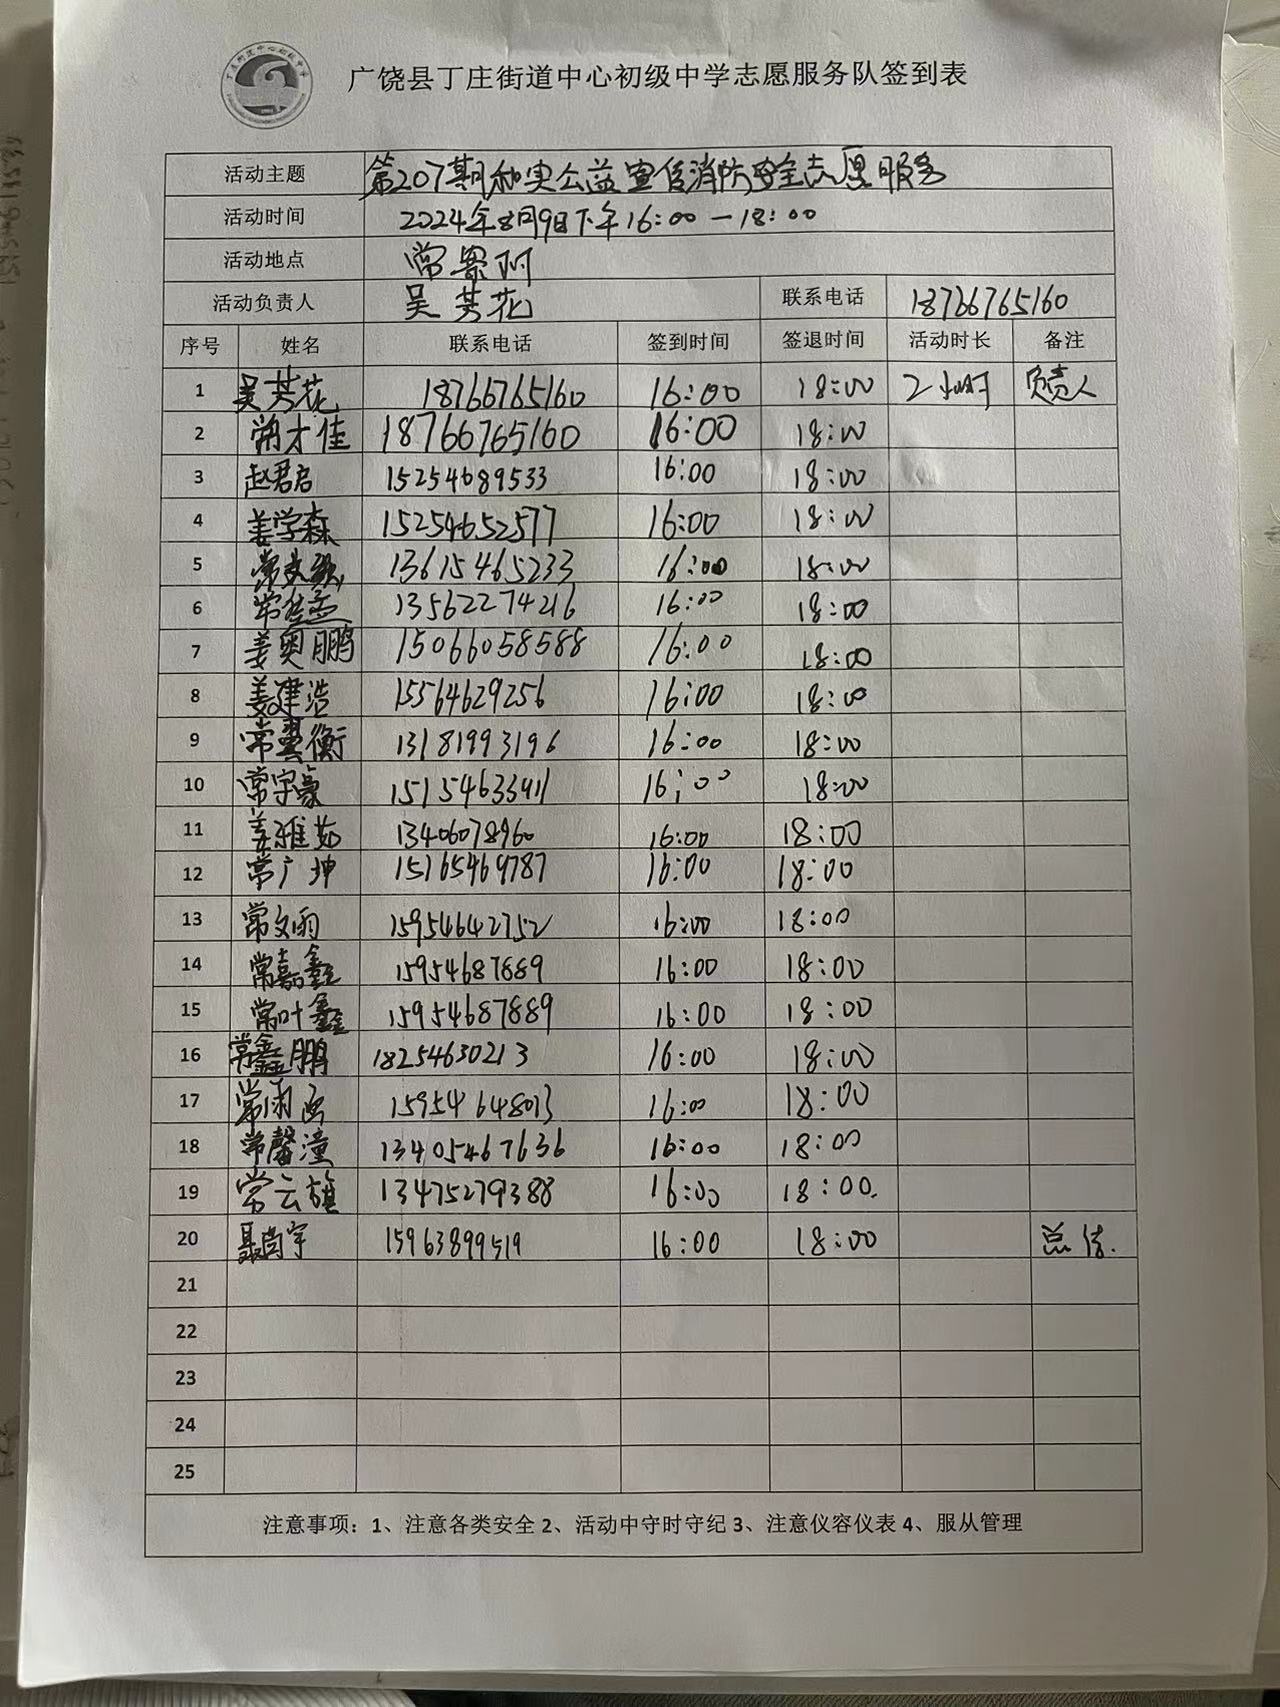 广饶县丁庄街道中心初级中学志愿服务队签到表
活动主题 第207期和实公益宣传消防安全志愿服务
活动时间 2024年8月9日下午16:00—18:00
活动地点 常
活动负责人 吴芳花 联系电话 18766765160
序号 姓名 联系电话 签到时间 签退时间 活动时长 备注
1 吴芳花 18766765160 16:00 18:00 2小时 负责人
2 才佳 18766765160 16:00 18:00
3 赵君启 15254689533 16:00 18:00
4 姜学森 15254652577 16:00 18:00
5 常文 13615465233 16:00 18:00
6 常 13562274216 16:00 18:00
7 姜奥鹏 15066058588 16:00 18:00
8 姜建浩 15564629256 16:00 18:00
9 常翼衡 13181993196 16:00 18:00
10 常宇豪 16:00 18:00
11 姜雅茹 13406078960 16:00 18:00
12 常广坤 15165469787 16:00 18:00
13 常文雨 15954642752 16:00 18:00
14 常嘉鑫 15954687889 16:00 18:00
15 常叶鑫 15954687889 16:00 18:00
16 常鑫鹏 18254630213 16:00 18:00
17 常雨 15954648013 16:00 18:00
18 常馨潼 13405467636 16:00 18:00
19 常云旗 13475279388 16:00 18:00.
20 聂尚宇 15963899519 16:00 18:00 总结.
21
22
23
24
25
注意事项：1、注意各类安全 2、活动中守时守纪 3、注意仪容仪表 4、服从管理